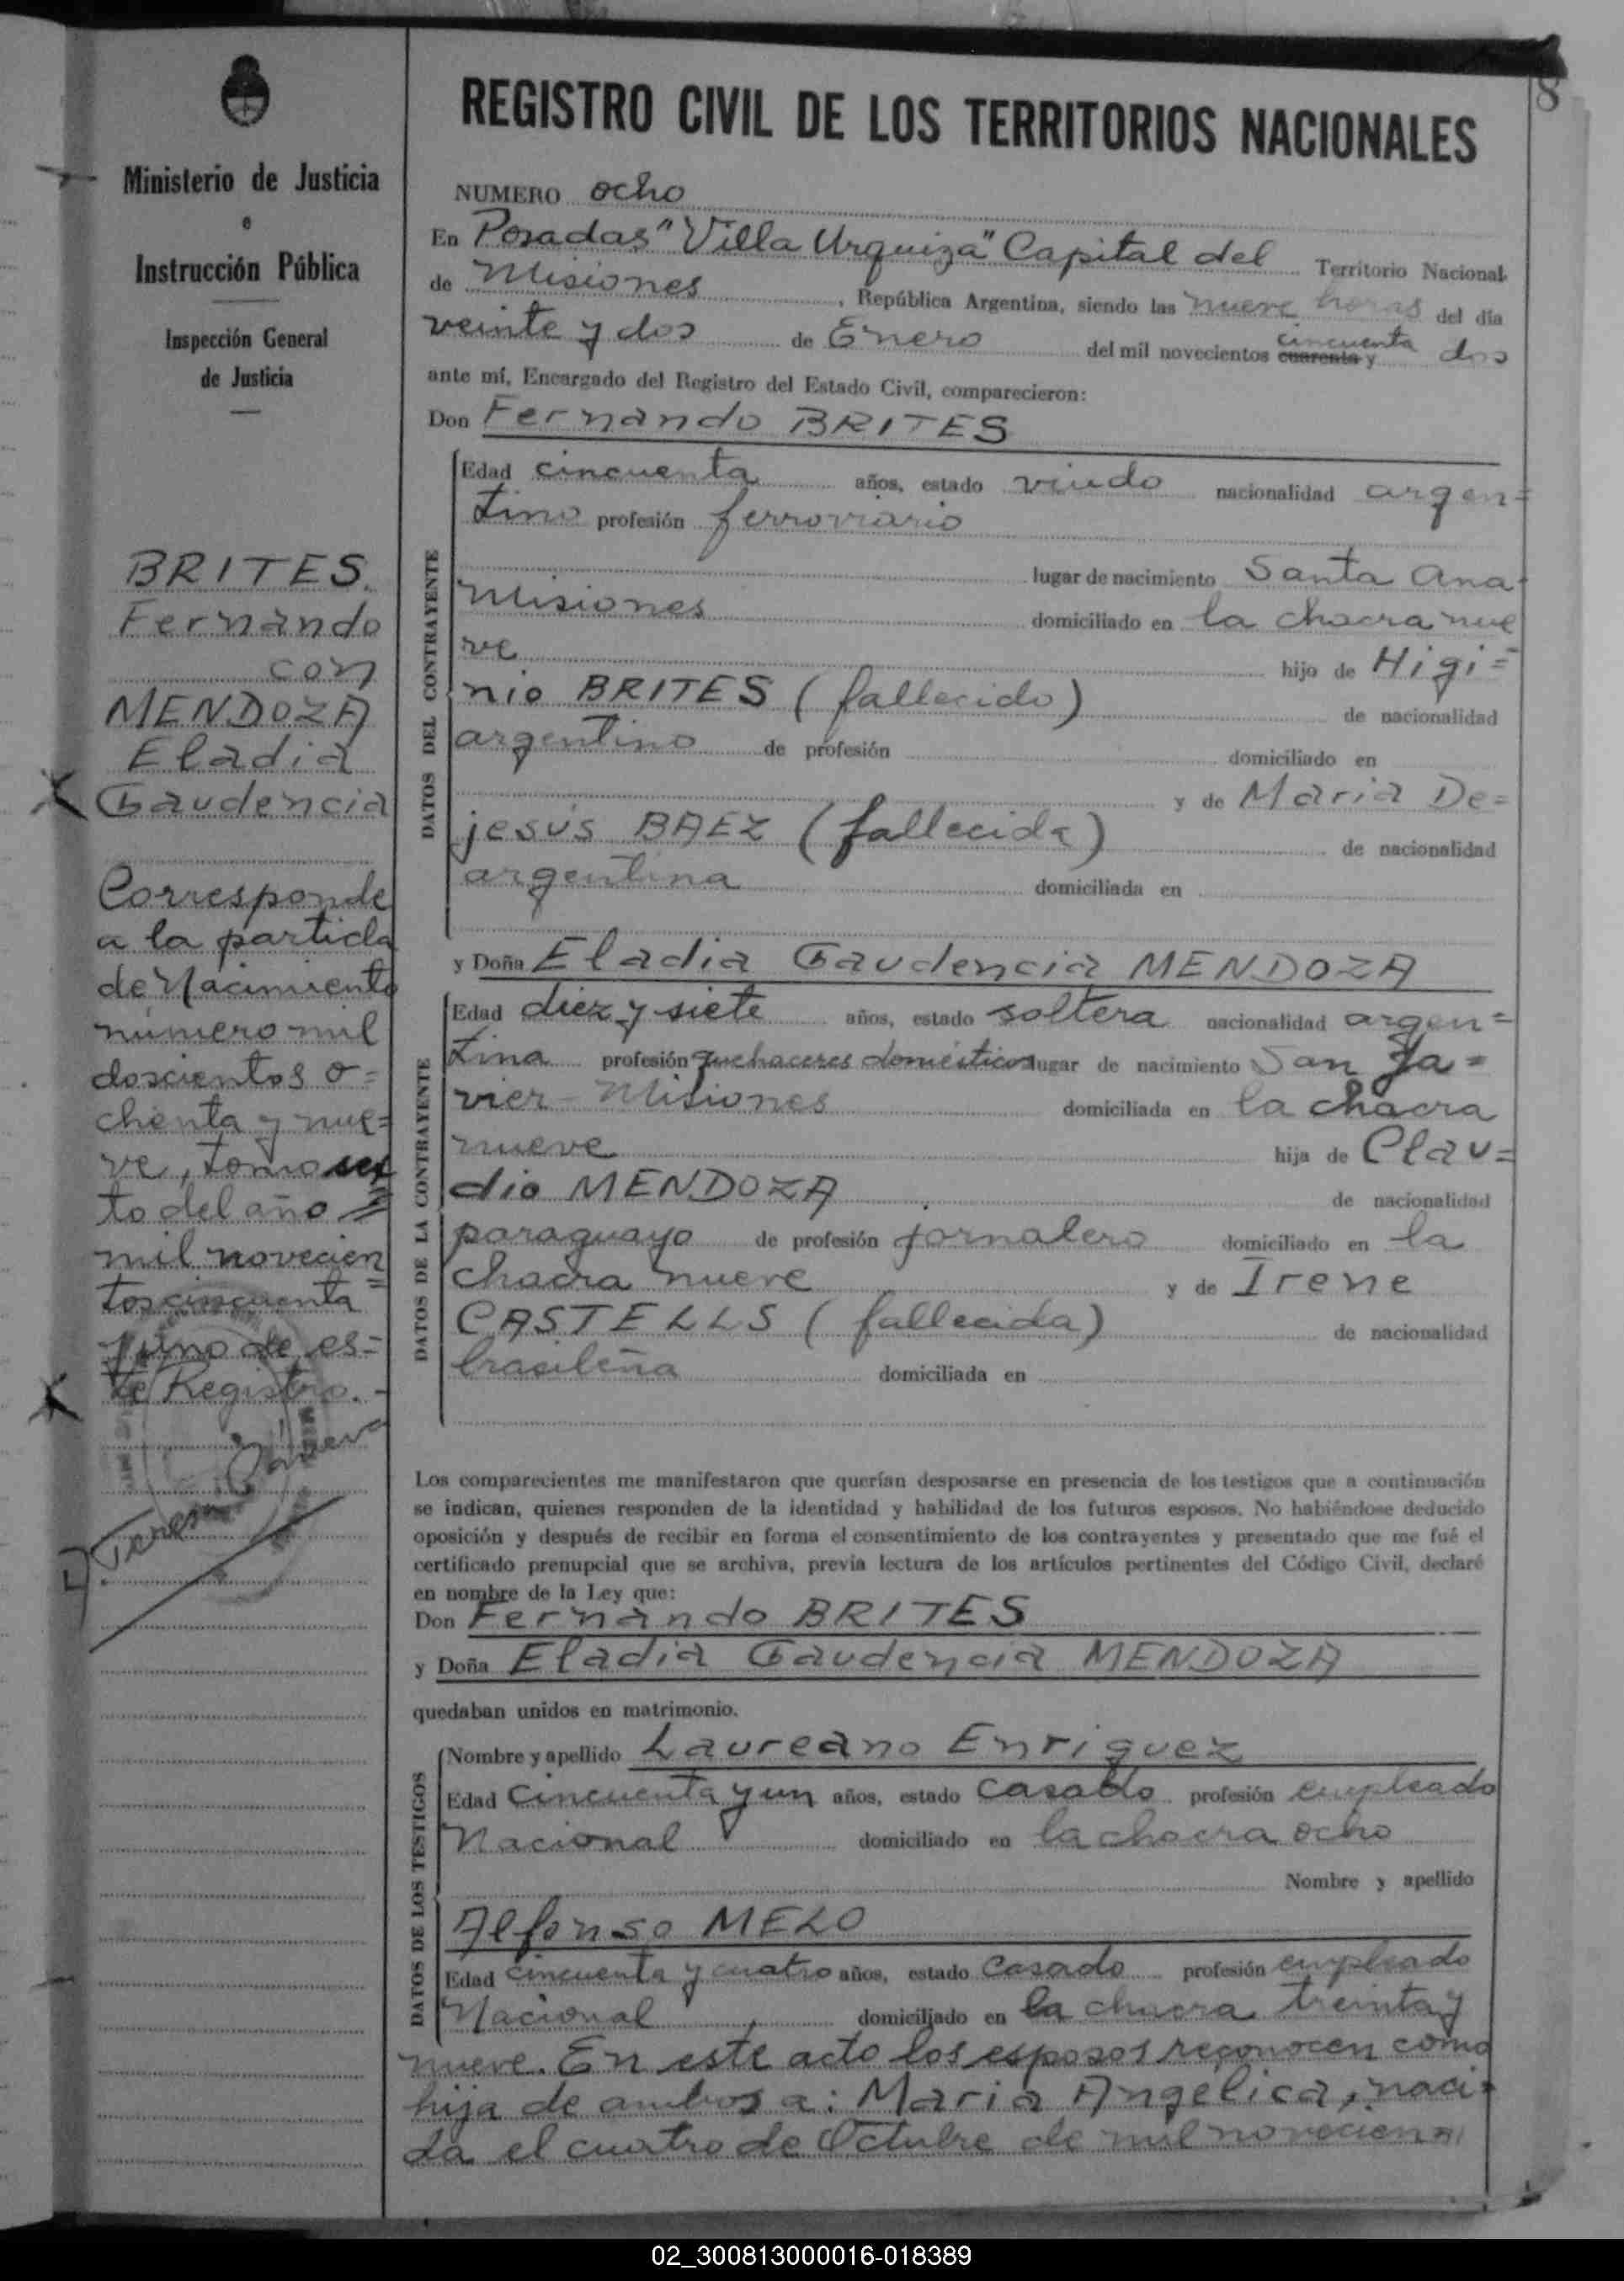 8
Ministerio de Justicia
e
Instrucción Pública
Inspección General
de Justicia
BRITES.
Fernando
con
MENDOZA
Eladia
Gaudencia
Corresponde
a la partida
de Nacimiento
número mil
doscientos o=
chenta y nue=
ve, tomo sex
to del año
mil novecien
tos cincuenta
y uno de es=
te Registro.-
REGISTRO CIVIL DE LOS TERRITORIOS NACIONALES
NUMERO ocho
En Posadas "Villa Urquiza" Capital del Territorio Nacional
de Misiones, República Argentina, siendo las nueve horas del día
veinte y dos de Enero del mil novecientos cuarenta y cincuenta dos
ante mí, Encargado del Registro del Estado Civil, comparecieron:
Don Fernando BRITES
DATOS DEL CONTRAYENTE
Edad cincuenta años, estado viudo nacionalidad argen=
tino profesión ferroviario
lugar de nacimiento Santa Ana-
Misiones domiciliado en la chacra nue
ve hijo de Higi=
nio BRITES (fallecido) de nacionalidad
argentino de profesión domiciliado en
y de Maria De=
jesús BAEZ (fallecida) de nacionalidad
argentina domiciliada en
y Doña Eladia Gaudencia MENDOZA
DATOS DE LA CONTRAYENTE
Edad diez y siete años, estado soltera nacionalidad argen=
tina profesión quehaceres domésticos lugar de nacimiento San Ja=
vier - Misiones domiciliada en la chacra
nueve hija de Clau=
dio MENDOZA de nacionalidad
paraguayo de profesión jornalero domiciliado en la
chacra nueve y de Irene
CASTELLS (fallecida) de nacionalidad
brasileña domiciliada en
Los comparecientes me manifestaron que querían desposarse en presencia de los testigos que a continuación
se indican, quienes responden de la identidad y habilidad de los futuros esposos. No habiéndose deducido
oposición y después de recibir en forma el consentimiento de los contrayentes y presentado que me fué el
certificado prenupcial que se archiva, previa lectura de los artículos pertinentes del Código Civil, declaré
en nombre de la Ley que:
Don Fernando BRITES
y Doña Eladia Gaudencia MENDOZA
quedaban unidos en matrimonio.
DATOS DE LOS TESTIGOS
Nombre y apellido Laureano Enriquez
Edad cincuenta y un años, estado casado profesión empleado
Nacional domiciliado en la chacra ocho
Nombre y apellido
Alfonso MELO
Edad cincuenta y cuatro años, estado casado profesión empleado
Nacional domiciliado en la chacra treinta y
nueve. En este acto los esposos reconocen como
hija de ambos a: Maria Angélica, naci=
da el cuatro de Octubre de mil novecien
02_300813000016-018389